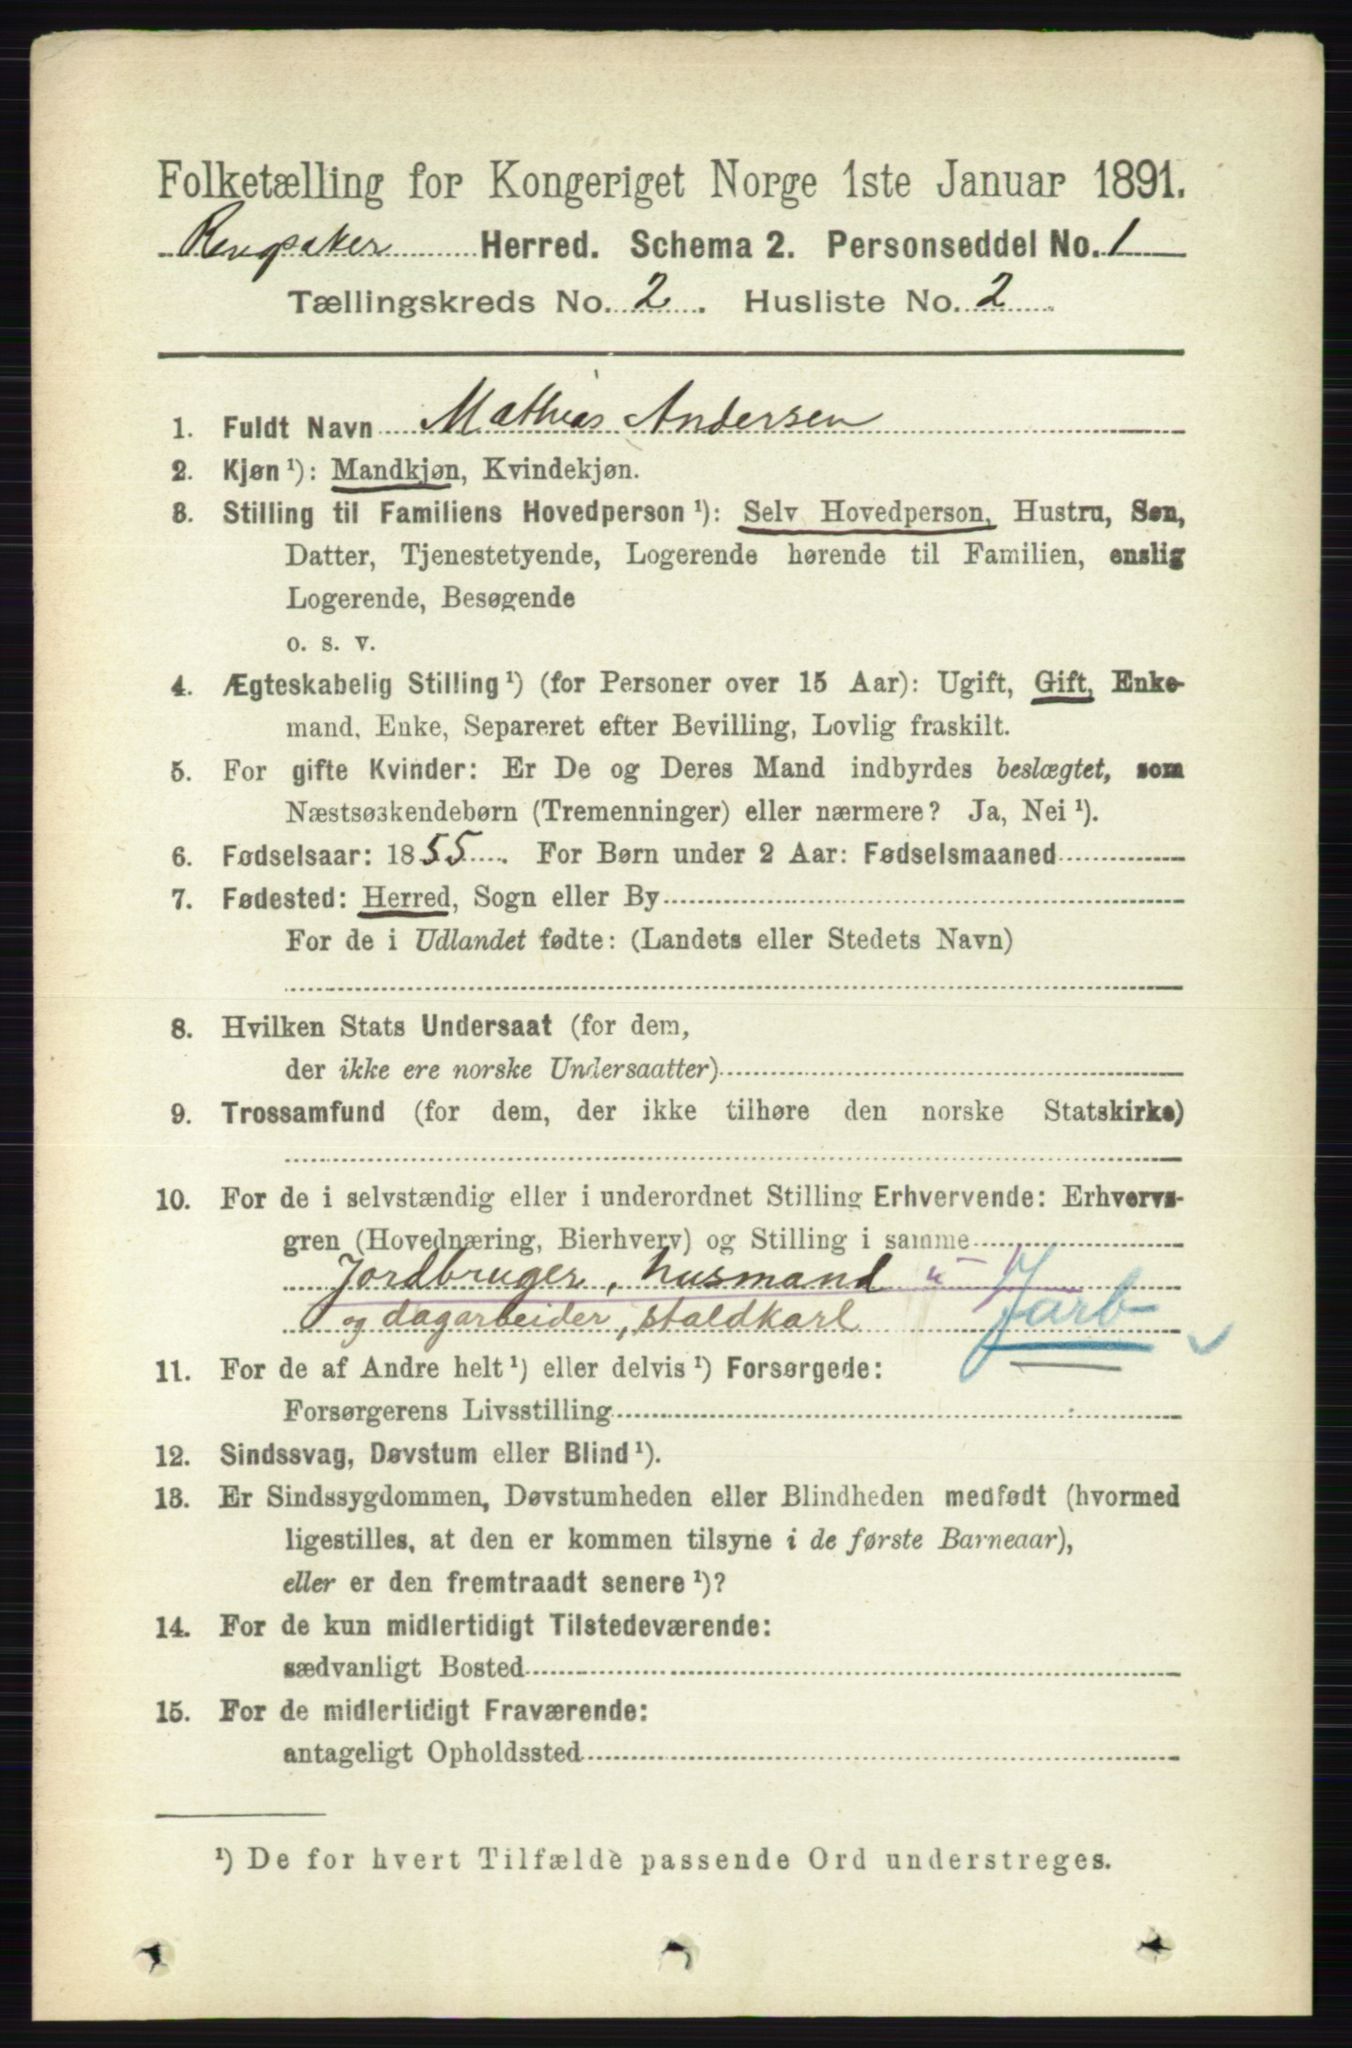 Folketælling for Kongeriget Norge 1ste Januar 1891.
Ringsaker Herred. Schema 2. Personseddel No. 1
Tællingskreds No. 2. Husliste No. 2
1. Fuldt Navn Mathias Andersen
2. Kjøn ¹): Mandkjøn, Kvindekjøn.
3. Stilling til Familiens Hovedperson ¹): Selv Hovedperson, Hustru, Søn,
Datter, Tjenestetyende, Logerende hørende til Familien, enslig
Logerende, Besøgende
o. s. v.
4. Ægteskabelig Stilling ¹) (for Personer over 15 Aar): Ugift, Gift, Enke-
mand, Enke, Separeret efter Bevilling, Lovlig fraskilt.
5. For gifte Kvinder: Er De og Deres Mand indbyrdes beslægtet, som
Næstsøskendebørn (Tremenninger) eller nærmere? Ja, Nei ¹).
6. Fødselsaar: 1855. For Børn under 2 Aar: Fødselsmaaned
7. Fødested: Herred, Sogn eller By
For de i Udlandet fødte: (Landets eller Stedets Navn)
8. Hvilken Stats Undersaat (for dem,
der ikke ere norske Undersaatter)
9. Trossamfund (for dem, der ikke tilhøre den norske Statskirke)
10. For de i selvstændig eller i underordnet Stilling Erhvervende: Erhvervs-
gren (Hovednæring, Bierhverv) og Stilling i samme
Jordbruger, husmand
og dagarbeider, staldkarl Jarb
11. For de af Andre helt ¹) eller delvis ¹) Forsørgede:
Forsørgerens Livsstilling
12. Sindssvag, Døvstum eller Blind ¹).
13. Er Sindssygdommen, Døvstumheden eller Blindheden medfødt (hvormed
ligestilles, at den er kommen tilsyne i de første Barneaar),
eller er den fremtraadt senere ¹)?
14. For de kun midlertidigt Tilstedeværende:
sædvanligt Bosted
15. For de midlertidigt Fraværende:
antageligt Opholdssted
¹) De for hvert Tilfælde passende Ord understreges.